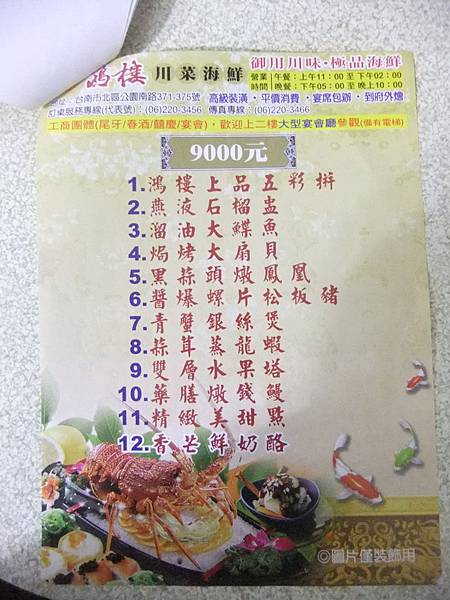 鴻樓 川菜海鮮 御用川味·極品海鮮
營業 午餐：上午11：00 至 下午02：00
時間 晚餐：下午05：00 至 晚上10：00
地址：台南市北區公園南路371-375號 高級裝潢·平價消費·宴席包辦·到府外燴
訂桌服務專線(代表號)：(06)220-3456 傳真專線：(06)220-3466
工商團體(尾牙/春酒/囍慶/宴會)·歡迎上二樓大型宴會廳參觀(備有電梯)
9000元
1.鴻樓上品五彩拼
2.燕液石榴盅
3.溜油大鰈魚
4.焗烤大扇貝
5.黑蒜頭燉鳳凰
6.醬爆螺片松板豬
7.青蟹銀絲煲
8.蒜茸蒸龍蝦
9.雙層水果塔
10.藥膳燉錢鰻
11.精緻美甜點
12.香芒鮮奶酪
◎圖片僅裝飾用